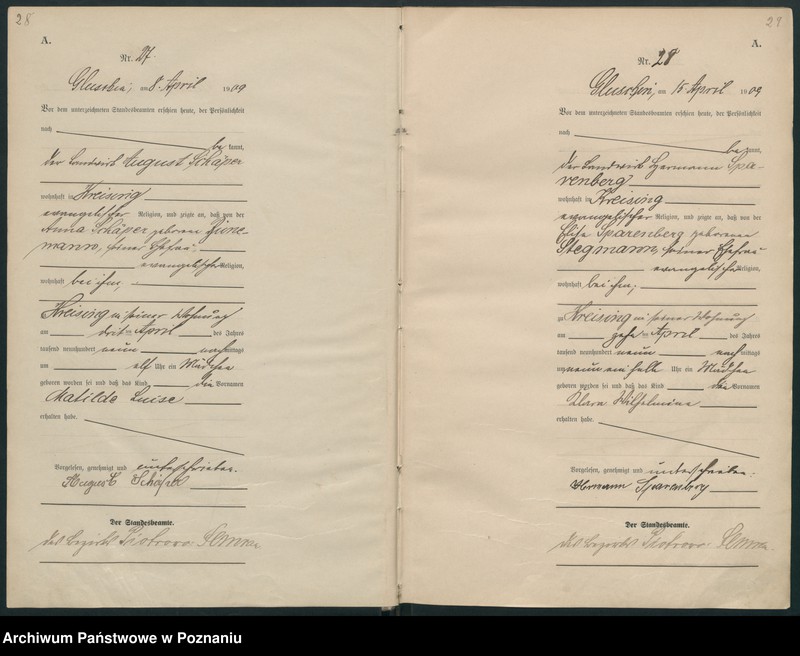 28
A.
Nr. 27.
Gluschin, am 8. April 1909
Vor dem unterzeichneten Standesbeamten erschien heute, der Persönlichkeit
nach
be kannt,
der Landwirt August Schäper
wohnhaft in Kreising
evangelischer Religion, und zeigte an, daß von der
Anna Schäper geborene Züne-
mann, seiner Ehefrau
evangelischer Religion,
wohnhaft bei ihm,
Kreising in seiner Wohnung
am drit ten April des Jahres
tausend neunhundert neun nachmittags
um elf Uhr ein Mädchen
geboren worden sei und daß das Kind die Vornamen
Matilde Luise
erhalten habe.
Vorgelesen, genehmigt und unterschrieben.
August Schäper
Der Standesbeamte.
des Bezirks Piotrowo
29
A.
Nr. 28
Gluschin, am 15 April 1909
Vor dem unterzeichneten Standesbeamten erschien heute, der Persönlichkeit
nach
be kannt,
der Landwirt Hermann Spa-
renberg
wohnhaft in Kreising
evangelischer Religion, und zeigte an, daß von der
Elise Sparenberg geborene
Stegmann, seiner Ehefrau
evangelischer Religion,
wohnhaft bei ihm,
zu Kreising in seiner Wohnung
am zehn ten April des Jahres
tausend neunhundert neun nachmittags
um neun ein halb Uhr ein Mädchen
geboren worden sei und daß das Kind die Vornamen
Klara Wilhelmine
erhalten habe.
Vorgelesen, genehmigt und unterschrieben.
Hermann Sparenberg
Der Standesbeamte.
des Bezirks Piotrowo
Archiwum Państwowe w Poznaniu